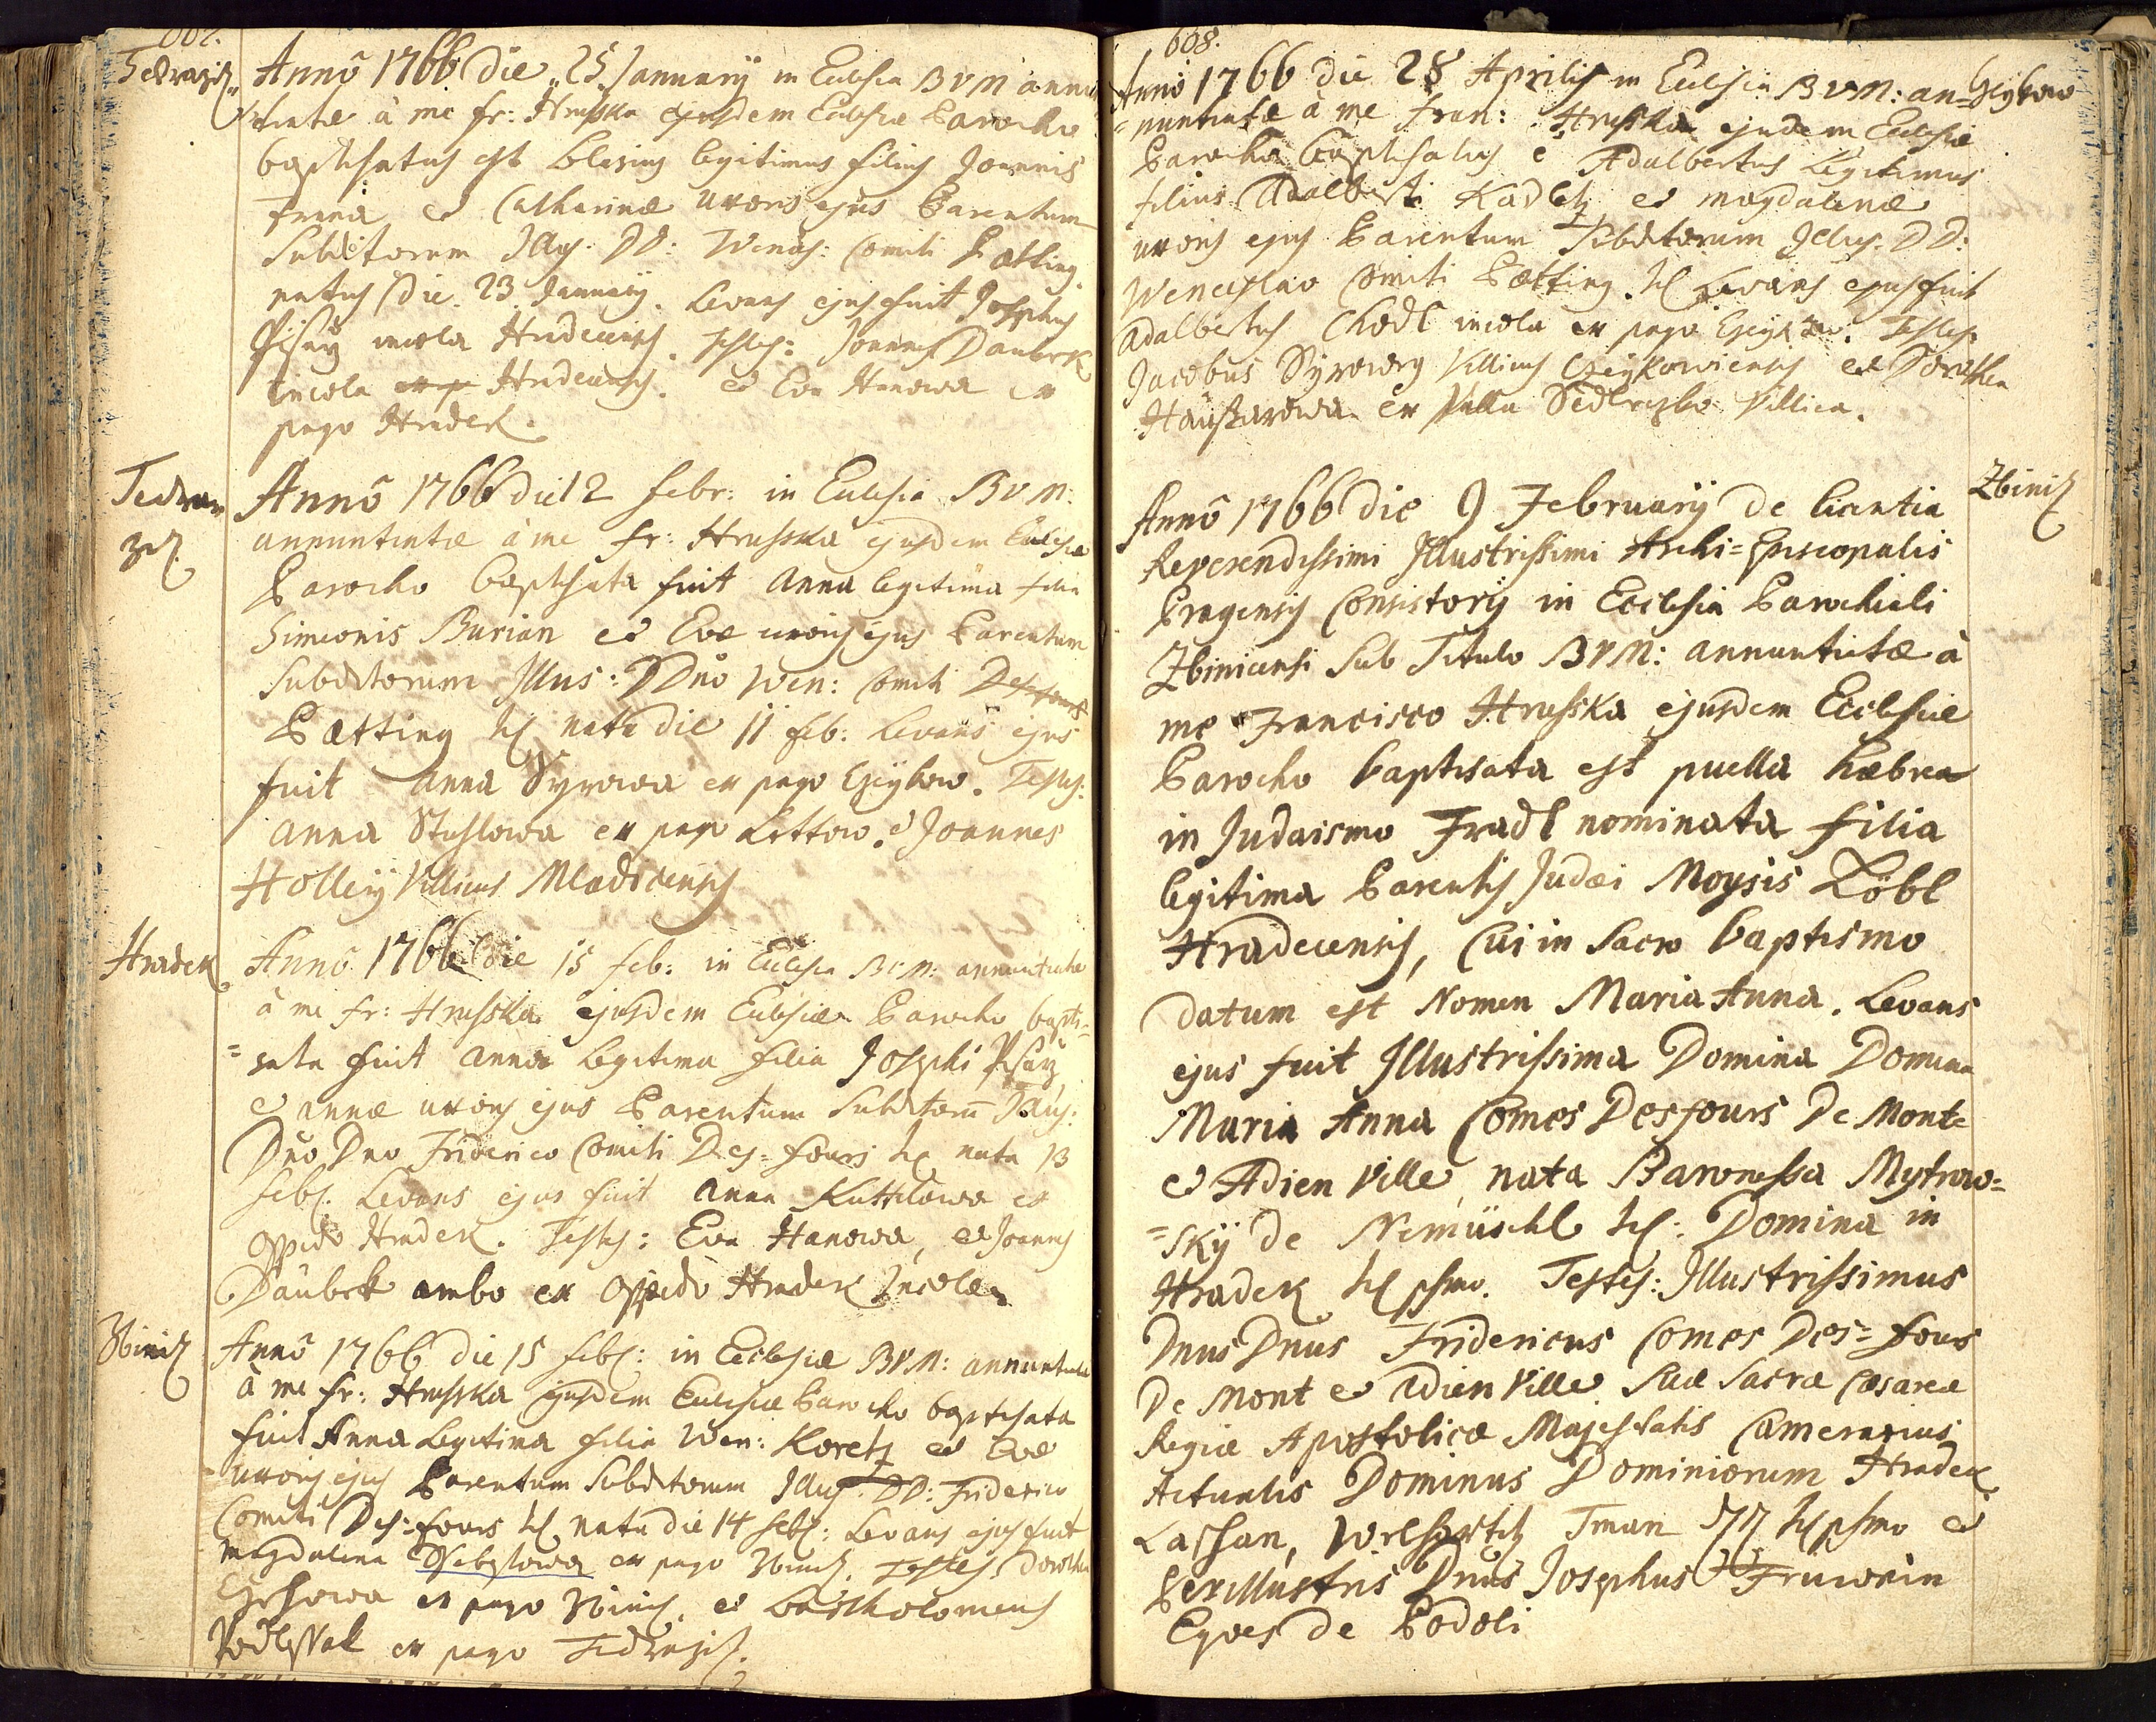 607.
Tedrazitz
Annô 1766 die 25 January in Eclesia BVM annu
=tiatæ à me fr: Hrusska ejusdem Eclesiæ Parocho
baptisatus est Blasius legitimus filius Joannis
Frana et Catharinæ uxoris ejus Parentum
Subditorum Illus: DD: Wences: Comiti Pætting.
natus die 23 January. Levans ejus fuit Josephus
incola Hradecensis. Testes: Joannes Daubek
incola Hradecensis. et Eva Hanowa ex
pago Hradek.
Tedra
zitz
Annô 1766 die 12 febr: in Eclesia BVM:
annuntiatæ à me fr: Hrusska ejusdem Eclesiæ
Parocho baptisata fuit Anna legitima filia
Simeonis Burian et Evæ uxoris ejus Parentum
Subditorum Illus: DDnô Wen: Comiti Desfours
Pætting nata die 11 feb: Levans ejus
fuit Anna Syrowa ex pago Czeykow. Testes:
Anna ex pago et Joannes
Holleÿ Villicus Mladicensis
Hradek
Annô 1766 die 15 feb: in Eclesia BVM: annuntiatæ
à me fr: Hrusska ejusdem Eclesiæ Parocho bapti=
=sata fuit Anna legitima filia Josephi
et Annæ uxoris ejus Parentum Subditorum Illus:
Dnô Dno Friderico Comiti Des=fours nata 13
feb. Levans ejus fuit Anna Kuttilowa ex
oppido Hradek. Testes: Eva Hanowa, et Joannes
Daubek ambo ex oppido Hradek Incolæ
Zbinitz
Annô 1766 die 15 feb: in Ecclesiæ BVM: annuntiatæ
à me fr: Hrusska ejusdem Eclesiæ Parocho baptisata
fuit Anna legitima filia Wen: Koretz et Evæ
uxoris ejus Parentum Subditorum Illus: DD: Friderico
Comiti Des=fours nata die 14 feb: Levans ejus fuit
Magdalena ex pago Zbinitz. Testes Dorothea
ex pago Zbinitz. et Bartholomeus
ex pago Tedrazitz.
608.
Annô 1766 die 28 Aprilis in Eclesia BVM: an=
Czeykow
=nuntiatæ à me Fran: Hrusska ejusdem Eclesiæ
Parocho baptisatus e Adalbertus legitimus
filius Adalberti Kadletz et Magdalenæ
uxoris ejus Parentum Subditorum Illus. DD:
Wenceslao Comiti Pætting. Levans ejus fuit
Adalbertus Chodl incola ex pago Czeykow. Testes
Jacobus Syrowy Villicus Czeykowiensis et Dorothea
ex Villa Villica.
Zbinitz
Annô 1766 die 9 February de licentia
Reverendissimi Illustrissimi Archi=Episcopalis
Pragensis Consistorÿ in Ecclesia Parochiali
Zbinicensi Sub Titulo BVM: annuntiatæ à
me Francisco Hrusska ejusdem Ecclesiæ
Parocho baptisata est puella hæbrea
in Judaismo Fradl nominata filia
legitima Parentis Judæi Moysis Löbl
Hradecensis, Cui in Sacro baptismo
datum est Nomen Maria Anna. Levans
ejus fuit Illustrissima Domina Domina
Maria Anna Comes Desfours De Monte
et Adien Ville, nata Baronessa Mytrow=
=skÿ de Nemüschl Domina in
Hradek. Testes: Illustrissimus
Dnus Dnus Fridericus Comes Des=fours
De Mont et Adien Ville Suæ Sacræ Cæsareæ
Regiæ Apostolicæ Majestatis Camerarius
Actualis Dominus Dominiorum Hradek
et
Perillustris Dnus Josephus Fruwein
Eques de Podoli